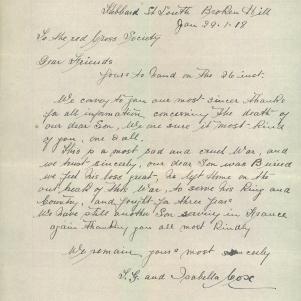 Hebbard St South Broken Hill
Jan 29.1.18
To the red Cross Society
Dear Friends
Yours to hand on the 26 inst.
We convey to you our most sincer Thanks
for all information concerning the death of
our dear Son, We are sure it most Kind
of you, one & all.
This is a most sad and cruel War, and
we trust sincerly, our dear Son was Buried
we feel his lose great, he left home on the
out break of this War, to serve his King and
Country, and fought for three years
We have still another Son serving in France
again Thanking you all most Kindly
We remain yours most
and Isabella Cox